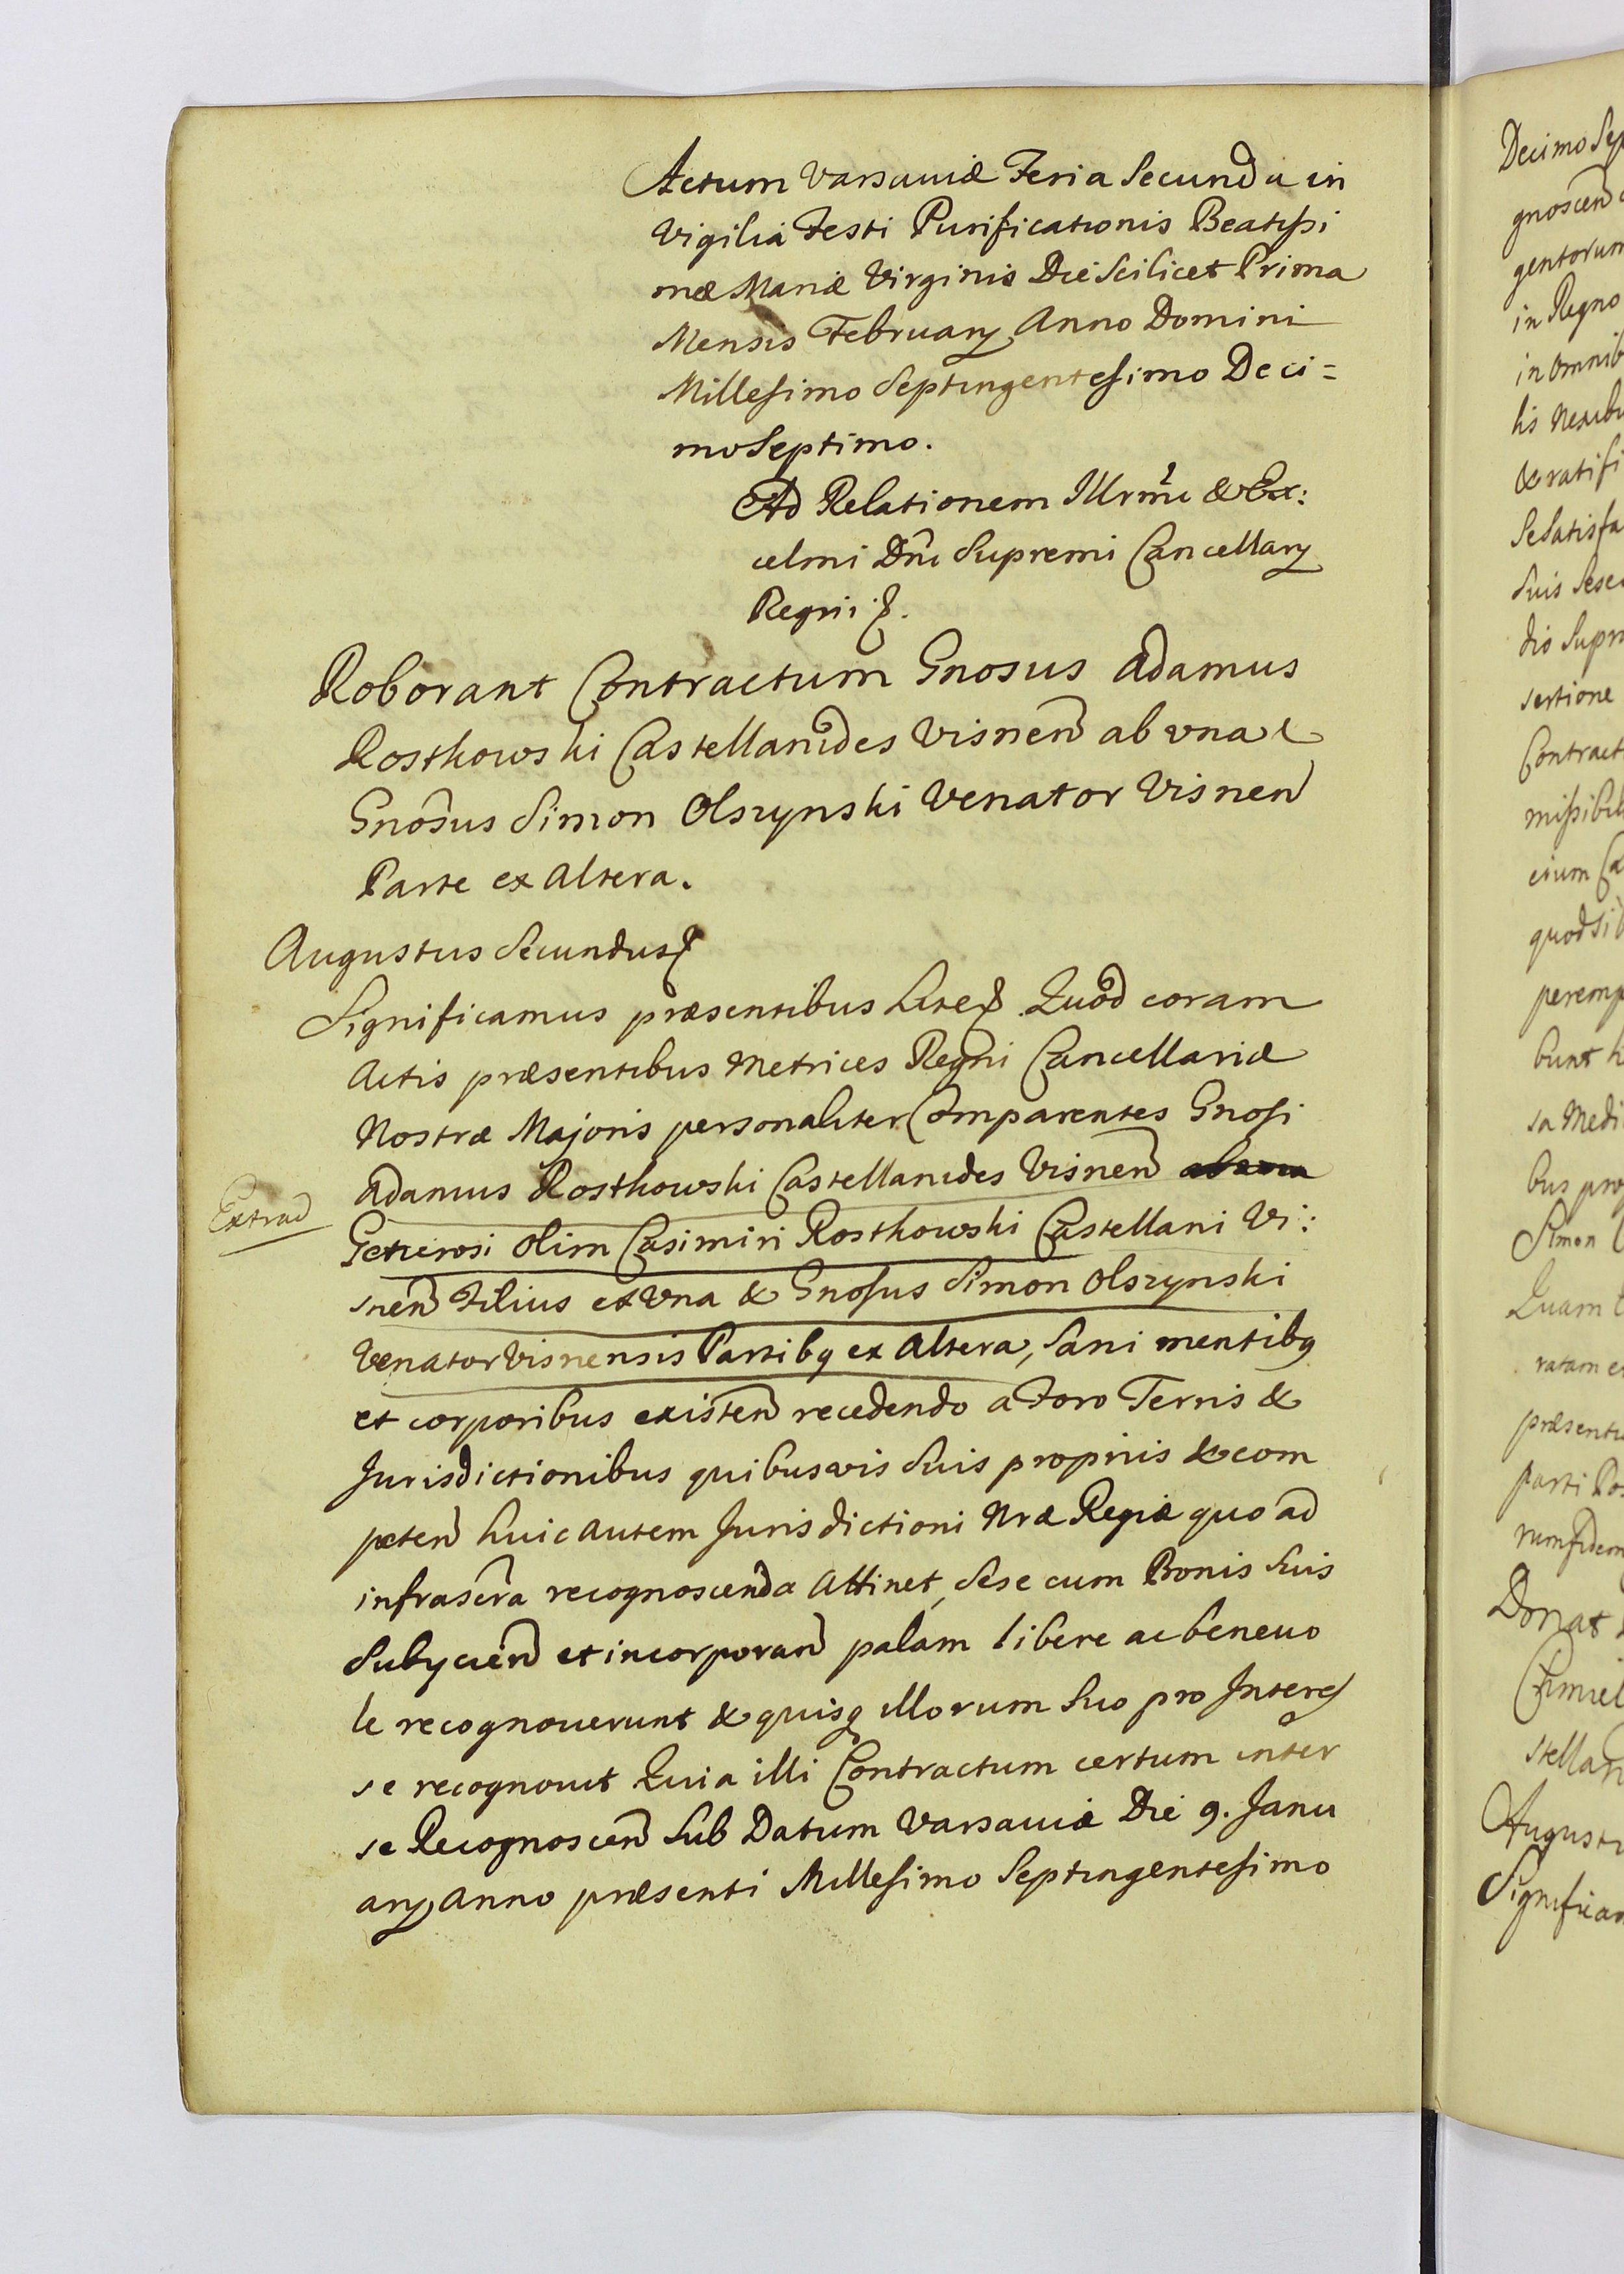 Actum Varsaviæ Feria Secunda in
Vigilia Festi Purificationis Beatissi
mæ Mariæ Virginis Die Scilicet Prima
Mensis Februarij Anno Domini
Millesimo Septingentesimo Deci=
mo Septimo.
Ad Relationem Illrmi & Ex:
celmi Dni Supremi Cancellarij
Regni &.
Roborant Contractum Gnosus Adamus
Rostkowski Castellanides Visnen ab una &
Gnosus Simon Olszynski Venator Visnen
Parte ex Altera.
Augustus Secundus &
Significamus præsentibus Lite& Quod coram
Actis præsentibus Metrices Regni Cancellariæ
Nostræ Majoris personaliter Comparentes Gnosi
Adamus Rostkowski Castellanides Visnen
Extrad
Generosi olim Casimiri Rostkowski Castellani Vi:
snen Filius ex Una & Gnosus Simon Olszynski
Venator Visnensis Partibq ex Altera, Sani mentibq
et corporibus existen recedendo a Foro Terris &
Jurisdictionibus quibusvis Suis proprijs & com
peten huic autem Jurisdictioni Nræ Regiæ quo ad
infrascra recognoscenda Attinet, Sese cum Bonis Suis
Subycien et incorporan palam libere ac benevo
le recognoverunt & quisq illorum Suo pro Interes
se recognovit Quia illi Contractum certum inter
se Recognoscen Sub Datum Varsaviæ Die 9. Janu
arij Anno præsenti Millesimo Septingentesimo
Decimo Sep
gnoscen
gentorum
in Regno
in omnib
lis Nexib
& ratifi
Se Satisfa
Suis Sese
dio Supr
sertione
Contract
missibil
cium Ca
quod si
peremp
bunt h
sa Medi
bus pro
Simon
Quam
ratam e
præsenti
parti Ros
rum fidem
Donat
stellan
Augustu
Significam